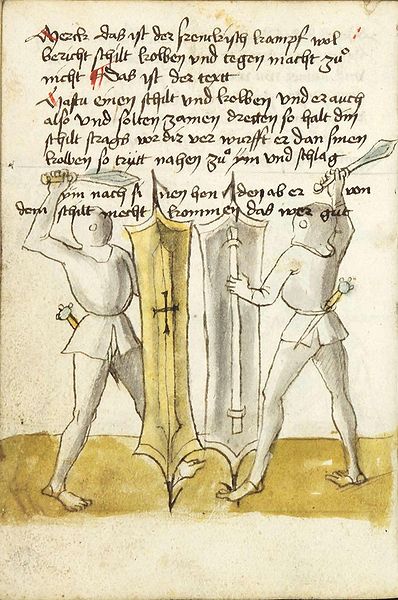 Merck das ist der frenckisch kampf wol
bericht schilt kolben und tegen macht zuͦ
nicht Das ist der textt
Hastu einen schilt und kolben und er auch
also und solten zamen dretten so halt din
schilt stragß vor dir ver wurfft er dan sinen
kolben so tritt nahen zuͦ ym und schlag
ym nach si nen hen den ab er von
dem schilt mecht krommen das wer gut